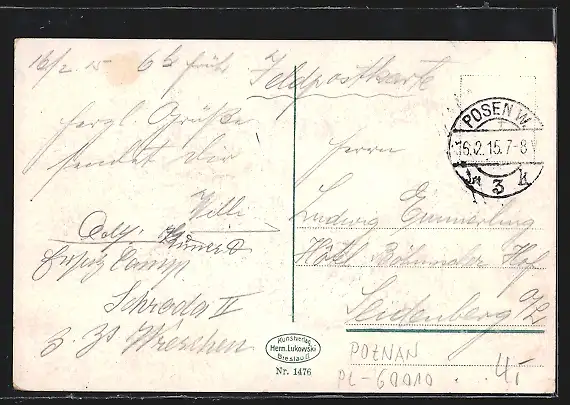 16/2 15 6 h früh
Feldpostkarte
herzl. Grüße
sendet Dir
Willi
Schroda II
z. Zt. Wreschen
POSEN W.
16.2.15.7-8
3
Herrn
Ludwig Emmerling
Hôtel Böhmischer Hof
Seidenberg O/L
Kunstverlag
Herm. Lukowski
Breslau II
Nr. 1476
POZNAŃ
PL-60010
4,-